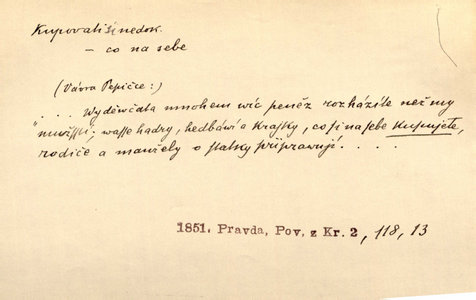 Kupovati si nedok.
– co na sebe
(Vávra Pepičce:)
".... Wy děwčata mnohem wíc peněz rozházíte než my
"mužští; wasse hadry, hedbáwí a krajky, co si na sebe kupujete,
rodiče a manžely o statky připrawují . . . .
1851. Pravda, Pov. z Kr. 2, 118, 13